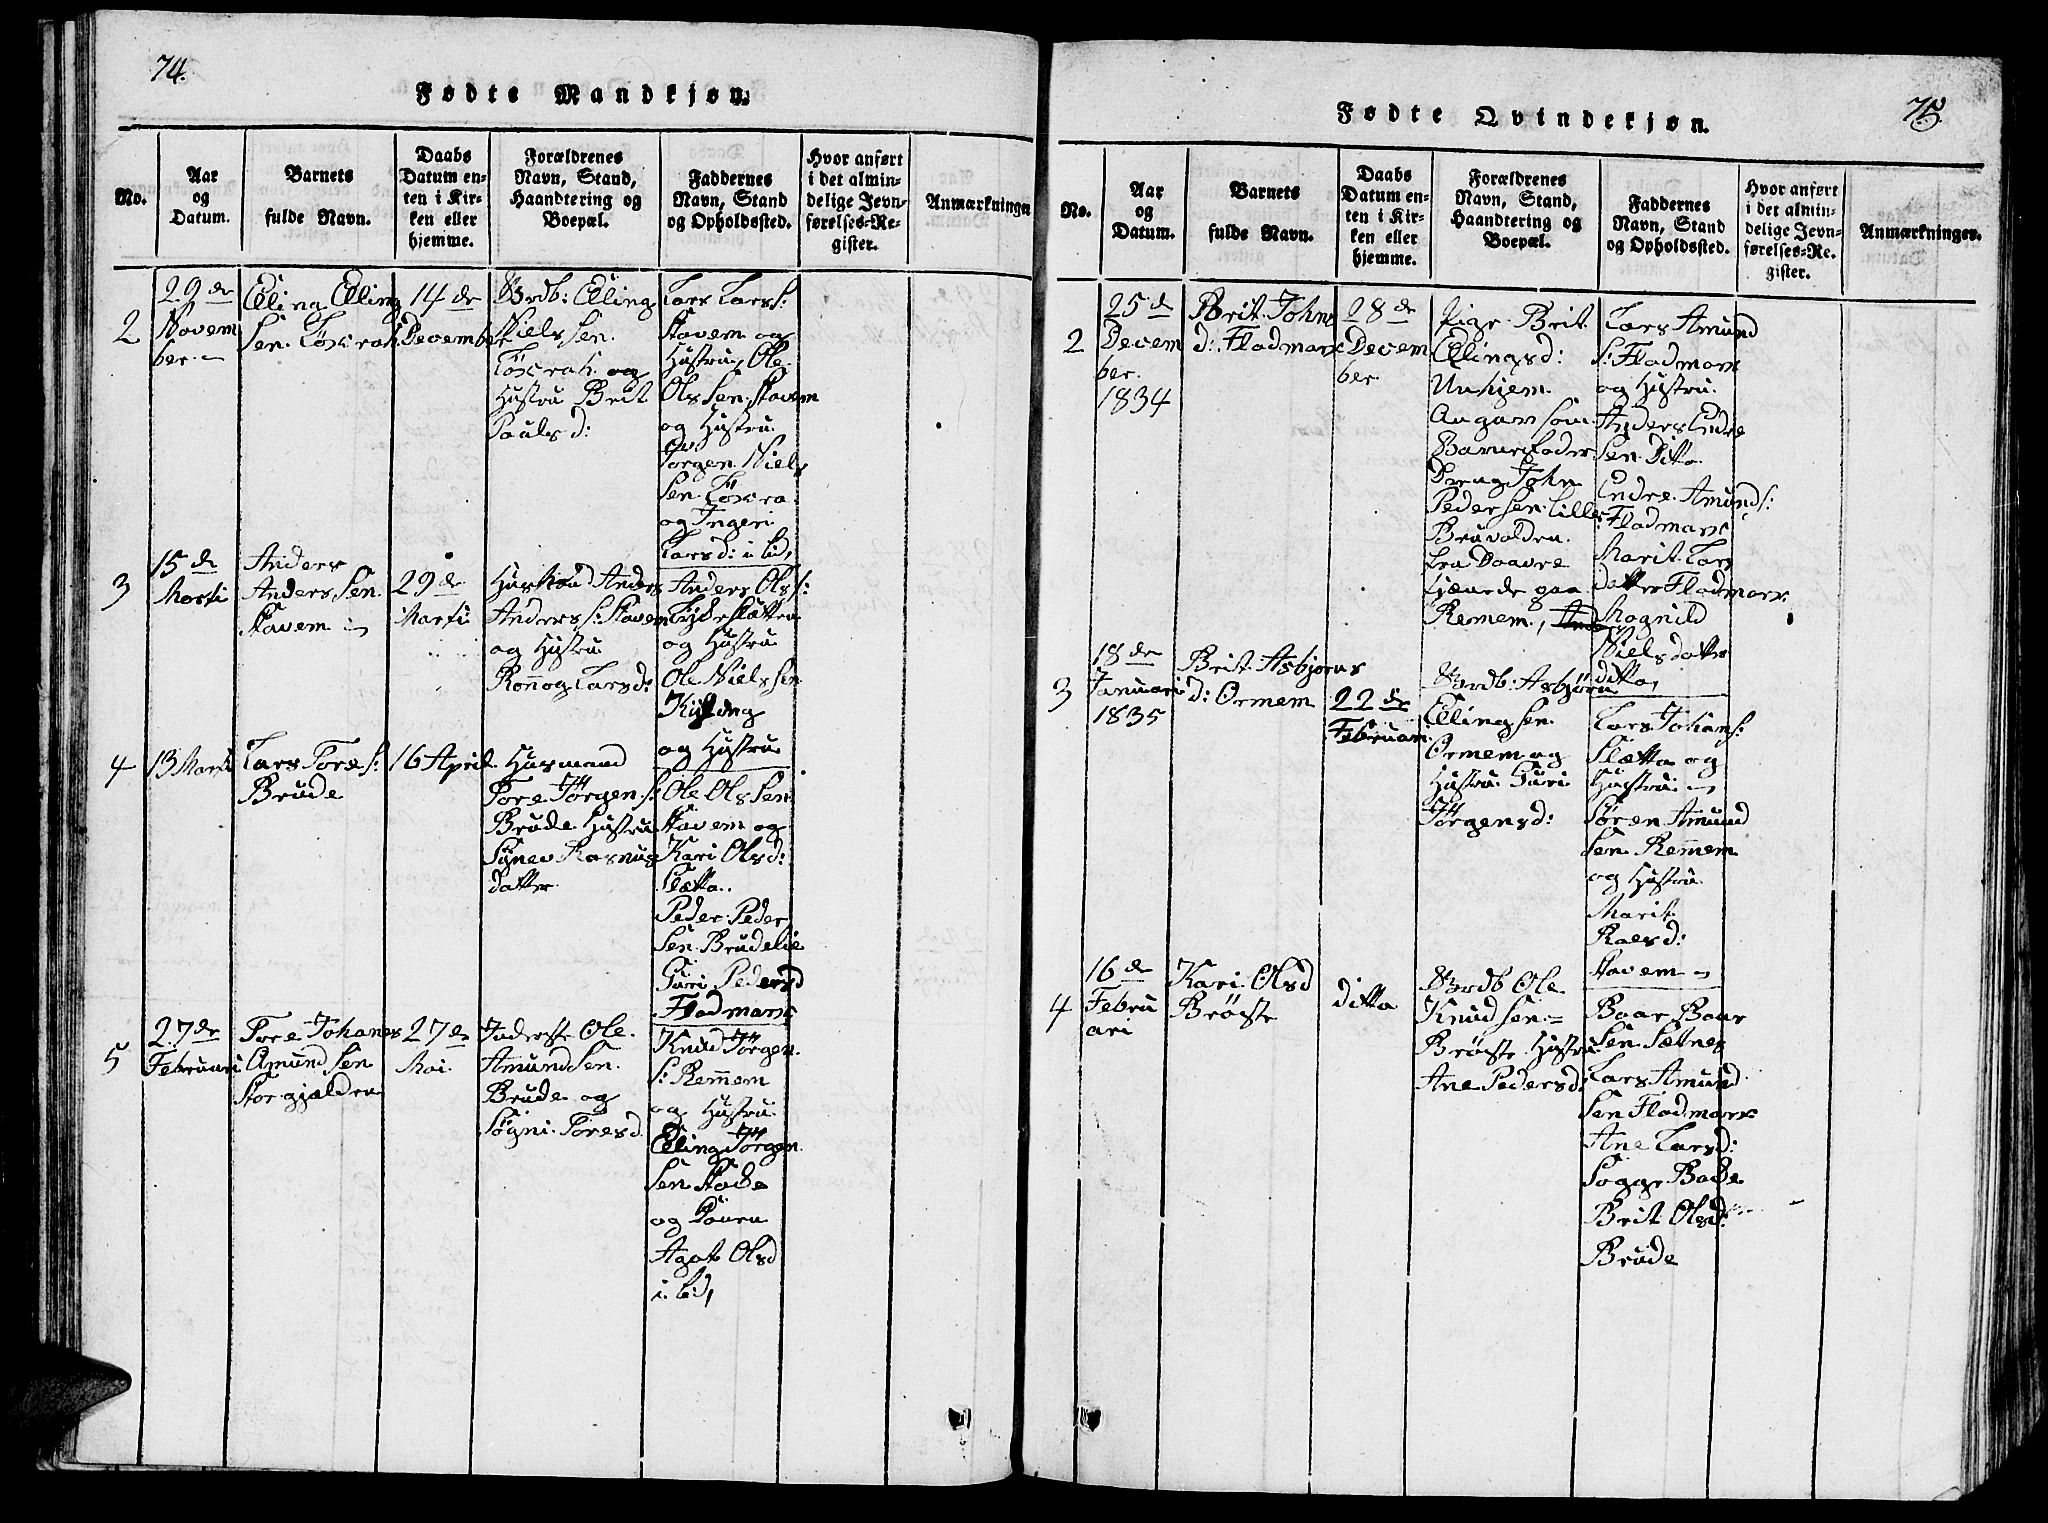 74.
Fødte Mandkjøn.
No.
Aar
og
Datum.
Barnets
fulde Navn.
Daabs
Datum en-
ten i Kir-
ken eller
hjemme.
Forældrenes
Navn, Stand,
Haandtering og
Boepæl.
Faddernes
Navn, Stand
og Opholdssted.
Hvor anført
i det almin-
delige Jevn-
førelses-Re-
gister.
Anmærkninger
2
29de
Novem
ber.
Elling Elling
Sen.
14de
December
Brdb: Elling
Niels Sen.
og
Hustru Brit
Paulsd:
Lars Lars S:
Stavem og
Hustru, Ole
Ols Sen. Stavem
og Hustru
Jørgen Niels
Sen.
og Ingeri
Larsd: i bid,
3
15de
Marti
Anders
Anders Sen.
Stavem
29de
Marti
Husmand Anders
Anders S: Stavem
og Hustru
Ronnog Larsd:
Anders Ols S:
og Hustru
Ole Niels Sen
Kylling
og Hustru
4
13 Marti
Lars Tore S:
Brude
16 April
Husmand
Tore Jørgen S:
Brude Hustru
Synev Rasmus
datter
Ole Ols Sen.
Stavem og
Kari Olsd:
Slætta.
Peder Peder
Sen. Brudelie
Guri Pedersd
Fladmark
5
27de
Februari
Tore Johanes
Amund Sen
Storgjælden
27de
Mai.
Inderste Ole
Amund Sen.
Brude og
Søgni Toresd
Knud Jørgen
S: Remmem
og Hustru
Elling Jørgen
Sen.
og
Agate Olsd
i bid,
75.
Fødte Qvindekjøn.
No.
Aar
og
Datum.
Barnets
fulde Navn.
Daabs
Datum en-
ten i Kir-
ken eller
hjemme.
Forældrenes
Navn, Stand,
Haandtering og
Boepæl.
Faddernes
Navn, Stand
og Opholdssted.
Hvor anført
i det almin-
delige Jevn-
førelses-Re-
gister.
Anmærkninger.
2
25de
Decem
ber.
1834
Brit Johns
d: Fladmark
28de
Decem
ber
Pige Brit
Ellingsd:
Unhjem.
Angav som
Barnefader
Dreng John
Peder Sen. Lille
Bruvolden.
fra Daavre
tjænende paa
Remem,
Lars Amund
S: Fladmark
og Hustru.
Anders Endre
Sen. Ditto
Endre Amund S:
Fladmark
Marit Lars
datter Fladmark
Magnild
Nielsdatter
ditto,
3
18de
Januari
1835
Brit Asbjørns
d: Ormem
22de
Februari
Brdb: Asbjørn
Elling Sen.
Ormem og
Hustru Guri
Jørgensd:
Lars Johan S:
Slætta og
Hustru
Søren Amund
Sen. Remem
og Hustru
Marit
Stavem
4
16de
Febru
ari
Kari Olsd
Brøste
ditto
Brdb Ole
Knud Sen
Brøste Hustru
Ane Pedersd
Baar Baar
Sen. Sætnes
Lars Amund
Sen Fladmark
Ane Larsd:
Sogge
Brit Olsd:
Brude